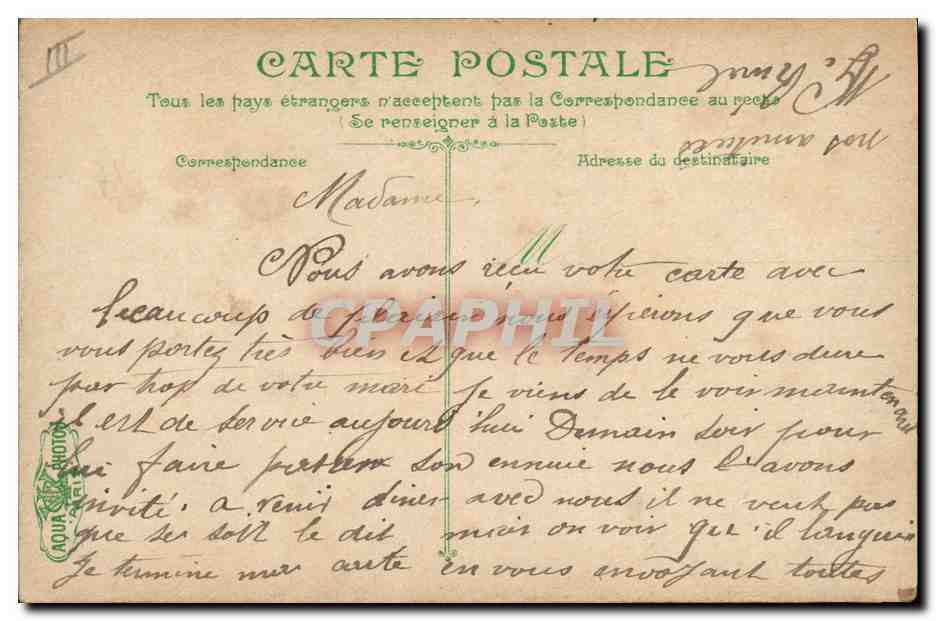 III
CARTE POSTALE
Tous les pays étrangers n'acceptent pas la Correspondance au recto
(Se renseigner à la Poste)
Correspondance
Adresse du destinataire
Madame,
Nous avons reçu votre carte avec
beaucoup de plaisir nous espérons que vous
vous portez très bien et que le temps ne vous dure
par trop de votre mari je viens de le voir maintenant
il est de service aujourd'hui Demain soir pour
lui faire passer son ennuie nous l'avons
invité a venir diner avec nous il ne veut pas
que se soit le dit mais on voir que il languir
Je termine ma carte en vous envoyant toutes
nos amitiés
AQUA PHOTO
PARIS
CPAPHIL